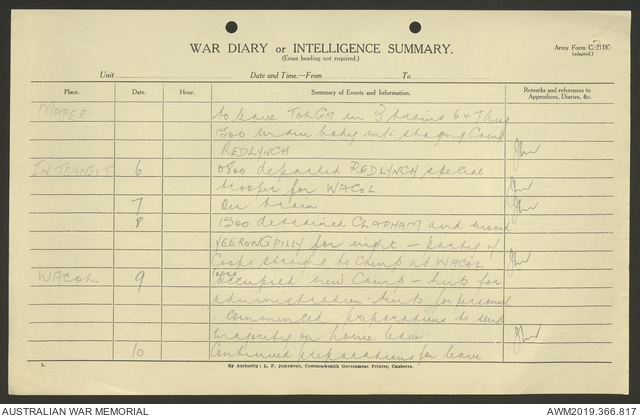 WAR DIARY or INTELLIGENCE SUMMARY.
(Erase heading not required.)
Army Form C. 2118.
(adapted.)
Unit
Date and Time.—From
To
Place. Date. Hour. Summary of Events and Information. Remarks and references to Appendices, Diaries, &c.
MAPEE to leave TOLGA in 3 trains 6 & 7 Aug
1500 main body into staging Camp
REDLYNCH
IN TRANSIT 6 0800 departed REDLYNCH special
trooper for WACOL
7 On train
8 1500 detrained CLAPHAM and moved
YEERONGPILLY for night – party of
Cooks straight to Camp at WACOL
WACOL 9 occupied new Camp – huts for
administration – tents for personnel
- Commenced preparations to send
majority on home leave
10 Continued preparations for leave
L.
By Authority: L. F. Johnston, Commonwealth Government Printer, Canberra.
AUSTRALIAN WAR MEMORIAL
AWM2019.366.817